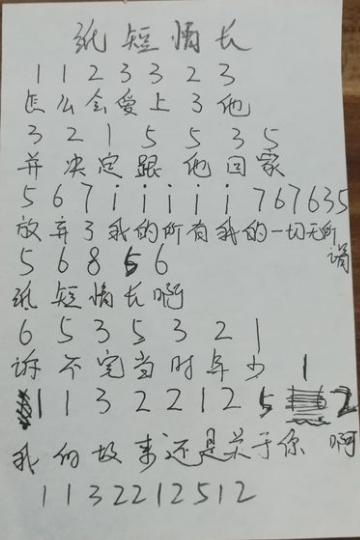 纸短情长
1 1 2 3 3 2 3
怎么会爱上了他
3 2 1 5 5 3 5
并决定跟他回家
5 6 7 i i i i i i 7 6 7 6 3 5
放弃了我的所有我的一切无所谓
5 6 8 5 6
纸短情长啊
6 5 3 5 3 2 1
诉不完当时年少
1 1 3 2 2 1 2 5 1 2
我的故事还是关于你啊
1 1 3 2 2 1 2 5 1 2